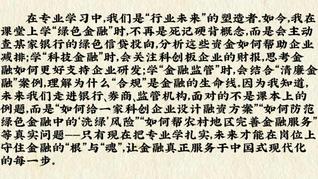 在专业学习中,我们是“行业未来”的塑造者.如今,我在
课堂上学“绿色金融”时,不再是死记硬背概念,而是会主动
查某家银行的绿色信贷投向,分析这些资金如何帮助企业
减排;学“科技金融”时,会关注科创板企业的财报,思考金
融如何更好支持企业研发;学“金融监管”时,会结合“清廉金
融”案例,理解为什么“合规”是金融的生命线.因为我知道,
未来我们走进银行、券商、监管机构,面对的不是课本上的
例题,而是“如何给一家科创企业设计融资方案”“如何防范
绿色金融中的‘洗绿’风险”“如何帮农村地区完善金融服务”
等真实问题——只有现在把专业学扎实,未来才能在岗位上
守住金融的“根”与“魂”,让金融真正服务于中国式现代化
的每一步.